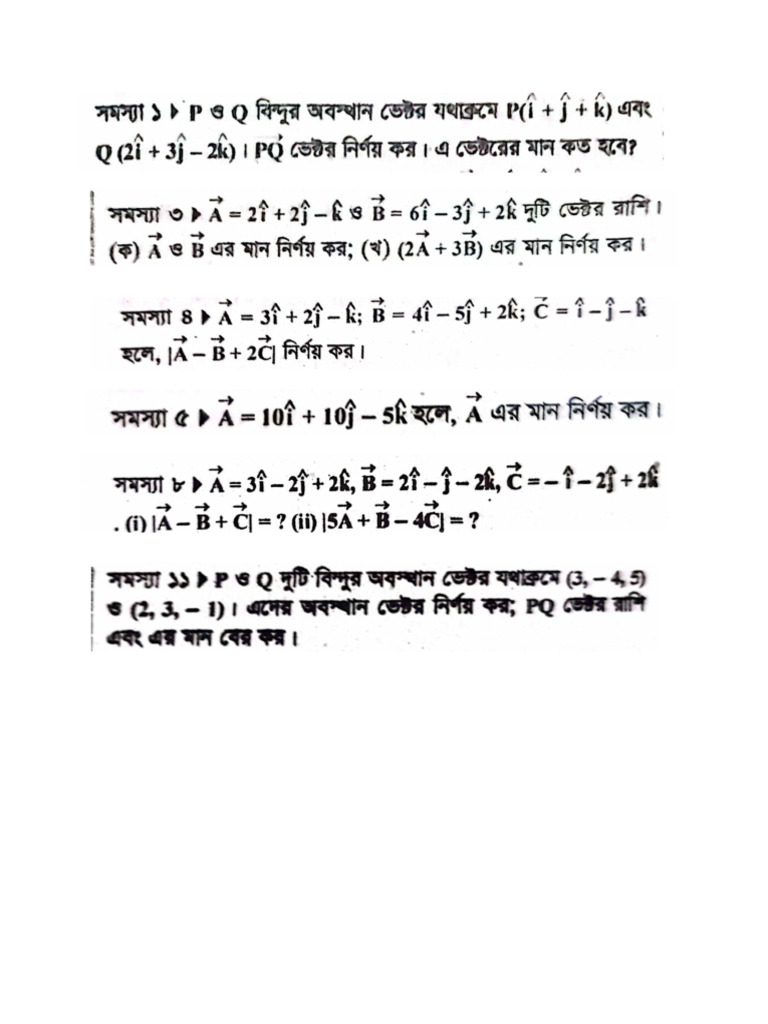 সমস্যা ১ ▶ P ও Q বিন্দুর অবস্থান ভেক্টর যথাক্রমে P(î + ĵ + k̂) এবং
Q (2î + 3ĵ – 2k̂) । PQ⃗ ভেক্টর নির্ণয় কর । এ ভেক্টরের মান কত হবে?
সমস্যা ৩ ▶ A⃗ = 2î + 2ĵ – k̂ ও B⃗ = 6î – 3ĵ + 2k̂ দুটি ভেক্টর রাশি ।
(ক) A⃗ ও B⃗ এর মান নির্ণয় কর; (খ) (2A⃗ + 3B⃗) এর মান নির্ণয় কর ।
সমস্যা 4 ▶ A⃗ = 3î + 2ĵ – k̂; B⃗ = 4î – 5ĵ + 2k̂; C⃗ = î – ĵ – k̂
হলে, |A⃗ – B⃗ + 2C⃗| নির্ণয় কর ।
সমস্যা ৫ ▶ A⃗ = 10î + 10ĵ – 5k̂ হলে, A⃗ এর মান নির্ণয় কর ।
সমস্যা ৮ ▶ A⃗ = 3î – 2ĵ + 2k̂, B⃗ = 2î – ĵ – 2k̂, C⃗ = – î – 2ĵ + 2k̂
. (i) |A⃗ – B⃗ + C⃗| = ? (ii) |5A⃗ + B⃗ – 4C⃗| = ?
সমস্যা ১১ ▶ P ও Q দুটি বিন্দুর অবস্থান ভেক্টর যথাক্রমে (3, – 4, 5)
ও (2, 3, – 1) । এদের অবস্থান ভেক্টর নির্ণয় কর; PQ ভেক্টর রাশি
এবং এর মান বের কর ।